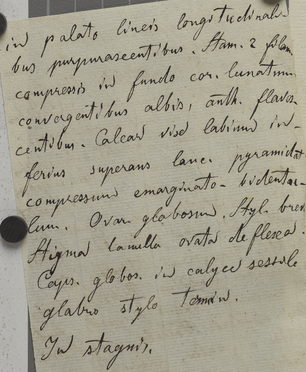 in palato lineis longitudinali-
bus purpurascentibus. Stam. 2 filam.
compressis in fundo cor. lunatim
convergentibus albis, anth. flaves-
centibus. Calcar vix labium in-
ferius superans lanc. pyramidat.
compressum emarginato-bidentat-
lum. Ovar. globosum, Styl. brev.
Stigma lamella ovata deflexa.
Caps. globos. in calyce sessile
glabro stylo termin.
In stagnis.